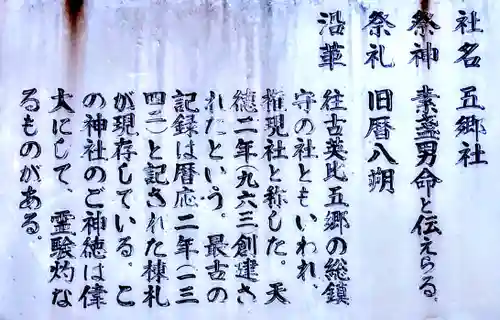 社名 五郷社
祭神 素盞男命と伝えらる。
祭礼 旧暦八朔
沿革 往古英比五郷の総鎮
守の社ともいわれ、
権現社と称した。天
徳二年(九六三創建さ
れたという。最古の
記録は暦応二年(一三
四二)と記された棟札
が現存している。こ
の神社のご神徳は偉
大にして、霊験灼な
るものがある。